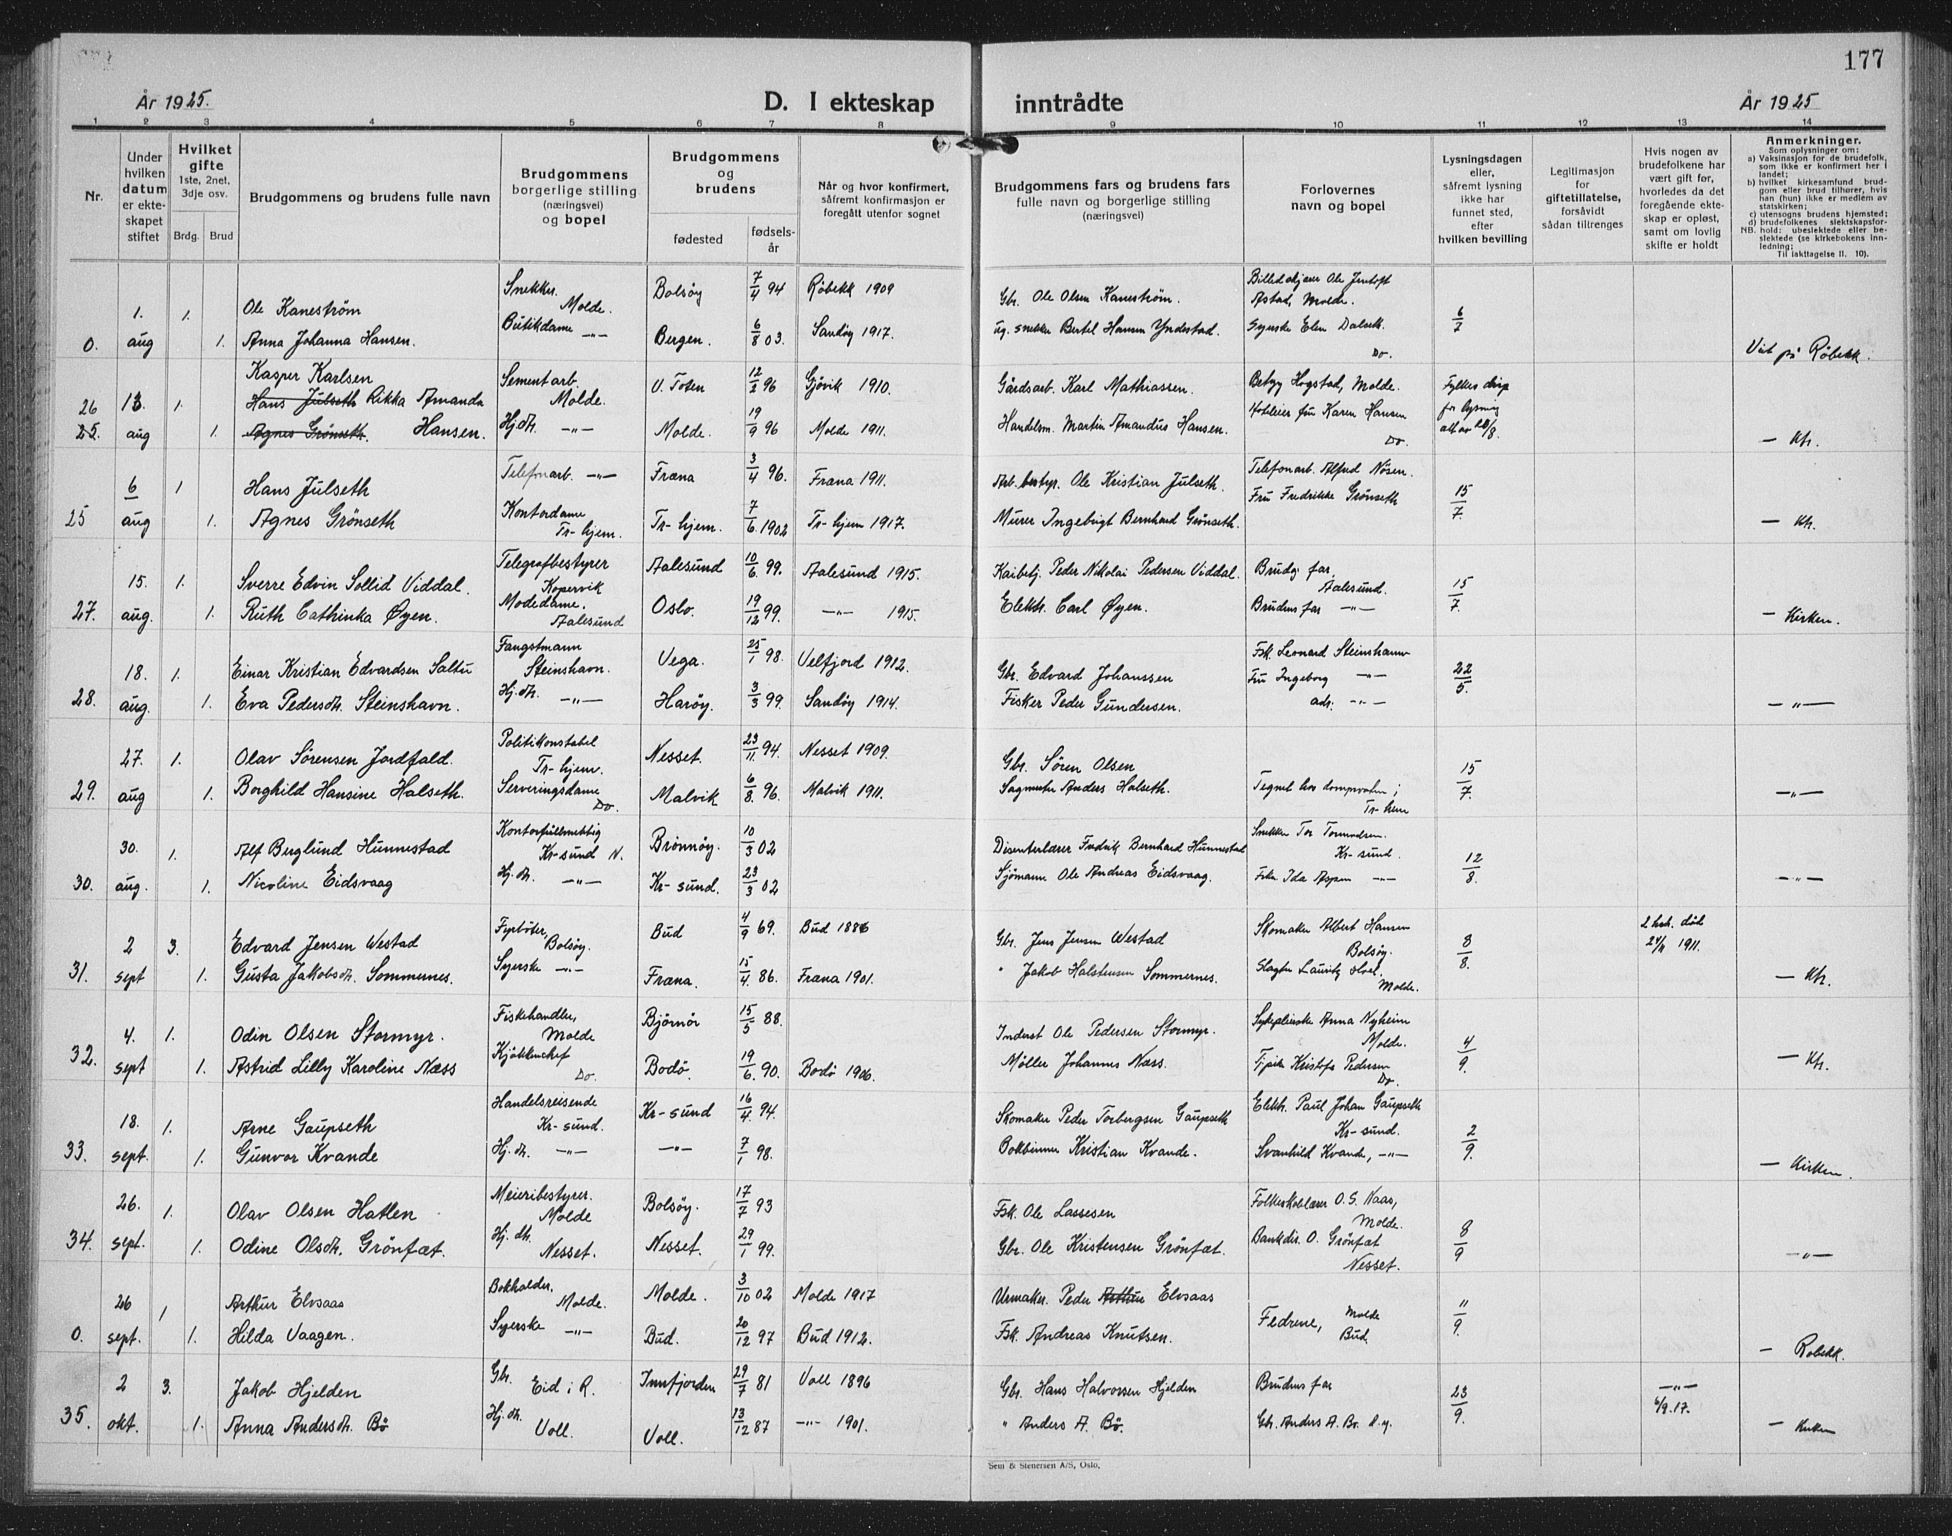 177
År 1925.
D. I ekteskap inntrådte
År 1925
1 2 3 4 5 6 7 8 9 10 11 12 13 14
Nr.
Under hvilken datum er ekteskapet stiftet
Hvilket gifte
1ste, 2net, 3dje osv.
Brdg. Brud
Brudgommens og brudens fulle navn
Brudgommens borgerlige stilling (næringsvei) og bopel
Brudgommens og brudens
fødested
fødselsår
Når og hvor konfirmert, såfremt konfirmasjon er foregått utenfor sognet
Brudgommens fars og brudens fars fulle navn og borgerlige stilling (næringsvei)
Forlovernes navn og bopel
Lysningsdagen eller, såfremt lysning ikke har funnet sted, efter hvilken bevilling
Legitimasjon for giftetillatelse, forsåvidt sådan tiltrenges
Hvis nogen av brudefolkene har vært gift før, hvorledes da det foregående ekteskap er opløst, samt om lovlig skifte er holdt
Anmerkninger.
Som oplysninger om:
a) Vaksinasjon for de brudefolk, som ikke er konfirmert her i landet;
b) hvilket kirkesamfund brudgom eller brud tilhører, hvis han (hun) ikke er medlem av statskirken;
c) utensogns brudens hjemsted;
d) brudefolkenes slektskapsforhold: ubeslektede eller beslektede (se kirkebokens innledning;
NB.
Til iakttagelse II. 10).
1. 1. Ole Kanestrøm Snekker Molde. Bolsøy 7/4 94 Røbekk 1909 Gbr. Ole Olsen Kanestrøm. Ole Jentoft Astad, Molde. 6/7
0. aug 1. Anna Johanna Hansen. Butikdame -"- Bergen. 6/8 03. Sandøy 1917. snekker Bertel Hansen Yndestad. Syerske Elen Do. Viet på Røbekk.
26 13. 1. Kasper Karlsen Hans Julseth Sementarb. Molde. V. Toten 12/2 96 Gjøvik 1910. Gårdsarb. Karl Mathiassen. Hogstad, Molde. Fylkes disp for lysning
25. aug 1. Rikka Amanda Hansen. Agnes Grønseth. Hj. dt. -"- Molde. 19/9 96 Molde 1911. Handelsm. Martin Amandus Hansen. fru Karen Hansen Do - Kk.
6 1 Hans Julseth Telefonarb. -"- Fræna 3/4 96. Fræna 1911. Arb. bestyr. Ole Kristian Julseth. Telefonarb. Alfred Nøsen. 15/7.
25 aug 1. Agnes Grønseth Kontordame Tr-hjem. Tr-hjem. 7/6 1902 Tr-hjem 1917. Murer Ingebrigt Bernhard Grønseth. Fru Fredrikke Grønseth - Kk.
15. 1. Sverre Edvin Sollid Viddal. Telegrafbestyrer Kopervik Aalesund 10/6. 99. Aalesund 1915. Kaibetj. Peder Nikolai Pedersen Viddal. Brudg far, Aalesund. 15/7.
27. aug. 1. Ruth Cathinka Øyen. Modedame. Aalesund Oslo. 19/12 99. -"- 1915. Elektr. Carl Øyen. Brudens far -"- - Kirken.
18. 1. Einar Kristian Edvardsen Saltu Fangstmann Steinshavn. Vega. 25/1 98. Velfjord 1912. Gbr. Edvard Johanssen Fsk. Leonard Steinshavn 22/5.
28. aug. 1. Eva Pedersdt. Steinshavn. Hj. dt. -"- Harøy. 3/3 99. Sandøy 1914. Fisker Peder Gundersen. Fru Ingeborg -"- adr. -"- -"-
27. 1. Olav Sørensen Jordfald. Politikonstabel Tr-hjem. Nesset. 23/11 94. Nesset 1909. Gbr. Søren Olsen 15/7.
29. aug 1. Borghild Hansine Halseth. Serveringsdame Do. Malvik 6/8. 96. Malvik 1911. Sagmester Anders Halseth. Tegnet hos domprosten i Tr-hem -"-
30. 1. Alf Berglund Hunnestad Kontorfullmektig Kr-sund N. Brønnøy. 10/3 02 Disenterlærer Fredrik Bernhard Hunnestad Snekker Tor Tormodsen. Kr-sund. 12/8.
30. aug. 1. Nicoline Eidsvaag Hj. dt. -"- Kr-sund. 23/3 02 Sjømann Ole Andreas Eidsvaag. Frk. Ida Aspen -"- -"-
2 3. Edvard Jensen Westad Fyrbøter, Bolsøy. Bud 4/9 69. Bud 1886 Gbr. Jens Jensen Westad Skomaker Albert Hansen Bolsøy. 8/8. død 1911.
31. sept 1. Gusta Jakobsdt. Sommernes. Syerske -"- Fræna. 15/4. 86. Fræna 1901. " Jakob Halstensen Sommernes. Slagter Lauritz Molde. - Kk.
4. 1. Odin Olsen Stormyr. Fiskehandler, Molde Bjørnør 15/5 88. Inderst Ole Pedersen Stormyr. Sykepleierske Anna Nyheim Molde. 4/9.
32. sept 1. Astrid Lilly Karoline Næss Kjøkkenchef Do. Bodø. 19/6. 90. Bodø 1906. Møller Johannes Næss. Kristofa Pedersen Do. - Kk.
18. 1. Arne Gaupseth Handelsreisende Kr-sund. Kr-sund 16/4 94. Skomaker Peder Torbergsen Gaupseth Elektr. Paul Johan Gaupseth Kr-sund. 2/9.
33. sept. 1. Gunvor Kvande Hj. dt. -"- -"- 7/1 98. Bokbinner Kristian Kvande. Svanhild Kvande, -"- - Kirken.
26. 1. Olav Olsen Hatlen Meieribestyrer. Molde Bolsøy. 17/7 93 Fsk. Ole Lassesen Folkeskolelærer O. S. Naas, Molde. 8/9
34. sept. 1. Odine Olsdt. Grönfæt. Hj. dt. Nesset. Nesset. 29/1 99. Gbr. Ole Kristensen Grönfæt. Bankdir. O. Grönfæt Nesset. -"-
26 1 Arthur Elvsaas Bokholder, Molde. Molde. 3/10 02 Molde 1917 Urmaker. Peder Arthur Elvsaas Fedrene, Molde 11/9.
0. sept. 1. Hilda Vaagen. Syerske -"- Bud. 20/12 97 Bud 1912. Fsk. Andreas Knutsen. Bud. - Røbekk.
2 3. Jakob Hjelden Gbr. Eid i R. Innfjorden 29/7 81 Voll 1896 Gbr. Hans Halvorsen Hjelden Brudens far 23/9. -"- 6/9.17.
35. okt. 1. Anna Andersdt. Bø Hj. dt. Voll. Voll. 13/12 87 -"- 1901. " Anders A. Bø. Gbr. Anders A. Bø d.y. - Kirken
Sem & Stenersen A/S, Oslo.